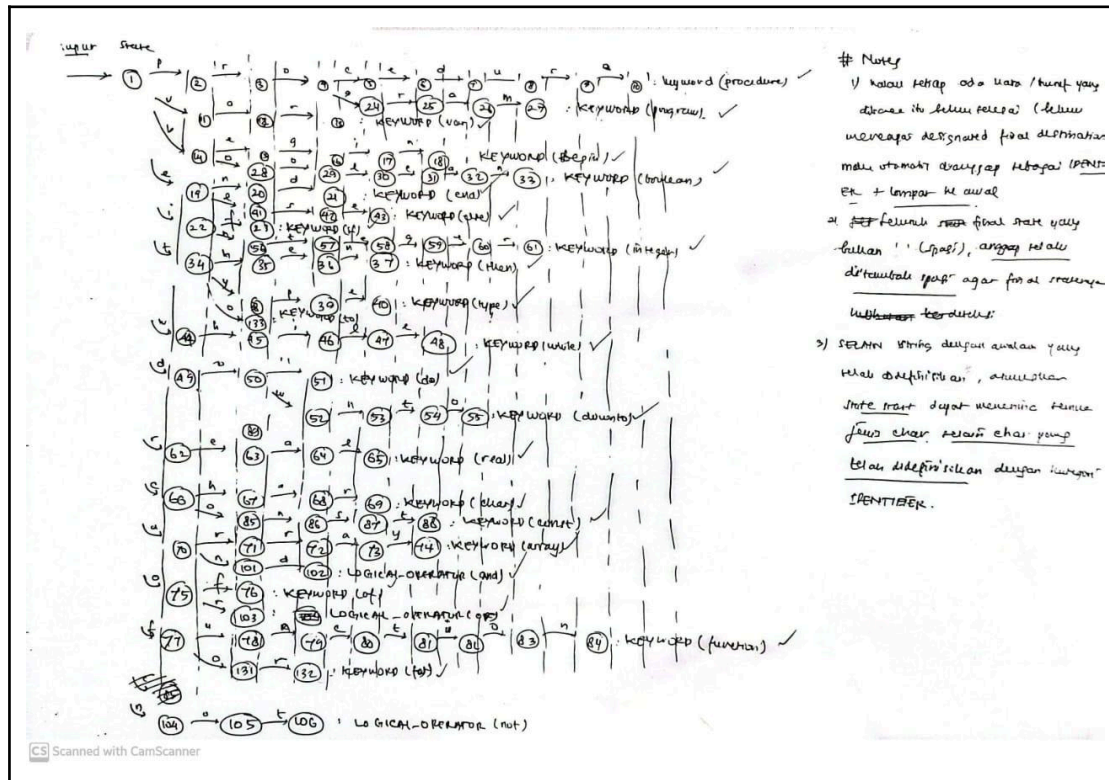 input state
① p ② r ③ o ④ c ⑤ e ⑥ d ⑦ u ⑧ r ⑨ e ⑩ : keyword (procedure) ✓
g ㉔ r ㉕ a ㉖ m ㉗ : KEYWORD (program) ✓
v ⑪ a ⑫ r ⑬ : KEYWORD (var) ✓
⑭ e g ⑯ i ⑰ n ⑱ KEYWORD (Begin) ✓
o 28 o 29 l 30 e 31 a 32 n 33 : KEYWORD (boolean) ✓
e 19 n 20 d 21 : KEYWORD (end) ✓
l 41 s 42 e 43 : KEYWORD (else) ✓
i 22 f 23 : KEYWORD (if) ✓
n 56 t 57 e 58 g 59 e 60 r 61 : KEYWORD (integer) ✓
t 34 h 35 e 36 n 37 : KEYWORD (then) ✓
y p 39 e 40 : KEYWORD (type) ✓
o 133 : KEYWORD (to) ✓
44 h 45 i 46 l 47 e 48 : KEYWORD (while) ✓
d 49 o 50 51 : KEYWORD (do) ✓
w 52 n 53 t 54 o 55 : KEYWORD (downto) ✓
r 62 e 63 a 64 l 65 : KEYWORD (real) ✓
66 h 67 a 68 r 69 : KEYWORD (char) ✓
o 85 n 86 s 87 t 88 : KEYWORD (const) ✓
a 70 r 71 r 72 a 73 y 74 : KEYWORD (array) ✓
n 101 d 102 : LOGICAL_OPERATOR (and) ✓
o 75 f 76 : KEYWORD (of) ✓
r 103 : LOGICAL_OPERATOR (or) ✓
f 77 u 78 n 79 c 80 t 81 i 82 o 83 n 84 : KEYWORD (function) ✓
o 131 r 132 : KEYWORD (for) ✓
n 104 o 105 t 106 : LOGICAL_OPERATOR (not)
# Notes
1) kalau setiap ada kata / huruf yang
dibaca itu belum selesai (belum
mencapai designated final destination
maka otomatis dianggap sebagai IDENTI
ER + lompat ke awal
2. seluruh final state yang
bukan ' ' (spasi), anggap selalu
ditambah spasi agar final statenya
3) SELAIN string dengan awalan yang
telah didefinisikan, asumsikan
state start dapat menerima semua
jenis char selain char yang
telah didefinisikan dengan kategori
IDENTIFIER.
CS Scanned with CamScanner